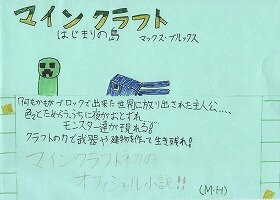 マインクラフト
はじまりの島
マックス・ブルックス
「何もかもブロックで出来た世界に放り出された主人公…。
色々とためらううちに夜がおとずれ
モンスター達が現れる!!
クラフトの力で武器や建物を作って生き残れ!
マインクラフト初の
オフィシャル小説!!
(M・H)